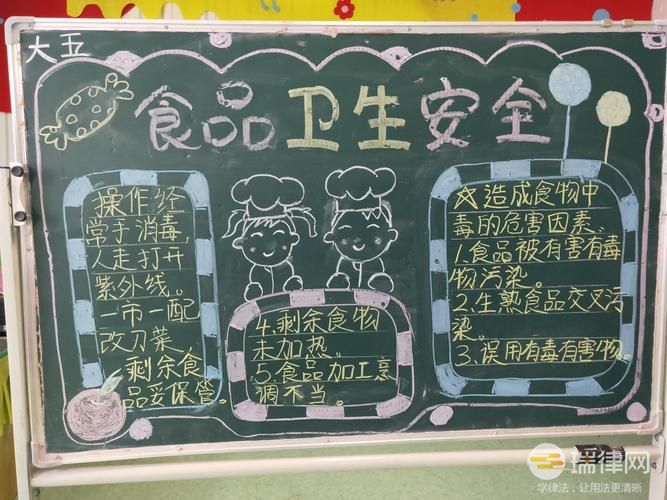 大五
食品卫生安全
操作经
常手消毒,
人走打开
紫外线。
一市一配
改刀菜,
剩余食
品妥保管。
4.剩余食物
未加热。
5.食品加工烹
调不当。
☆造成食物中
毒的危害因素、
1.食品被有害有毒
物污染。
2.生熟食品交叉污
染。
3.误用有毒有害物。
瑞律网
学律法，让用法更清晰